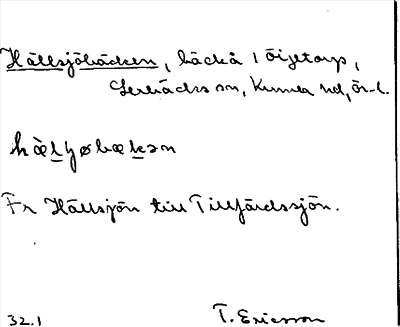 Hällsjöbäcken, bäck i Öijetorp,
Lerbäcks sn, Kumla hd, Ör. l.
hæ̀lʃøbækən
Fr Hällsjön till Tillfärdssjön.
32.1 T. Ericsson